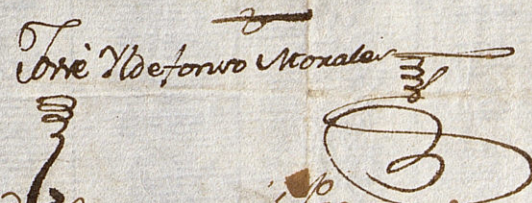 Jose Yldefonso Morales